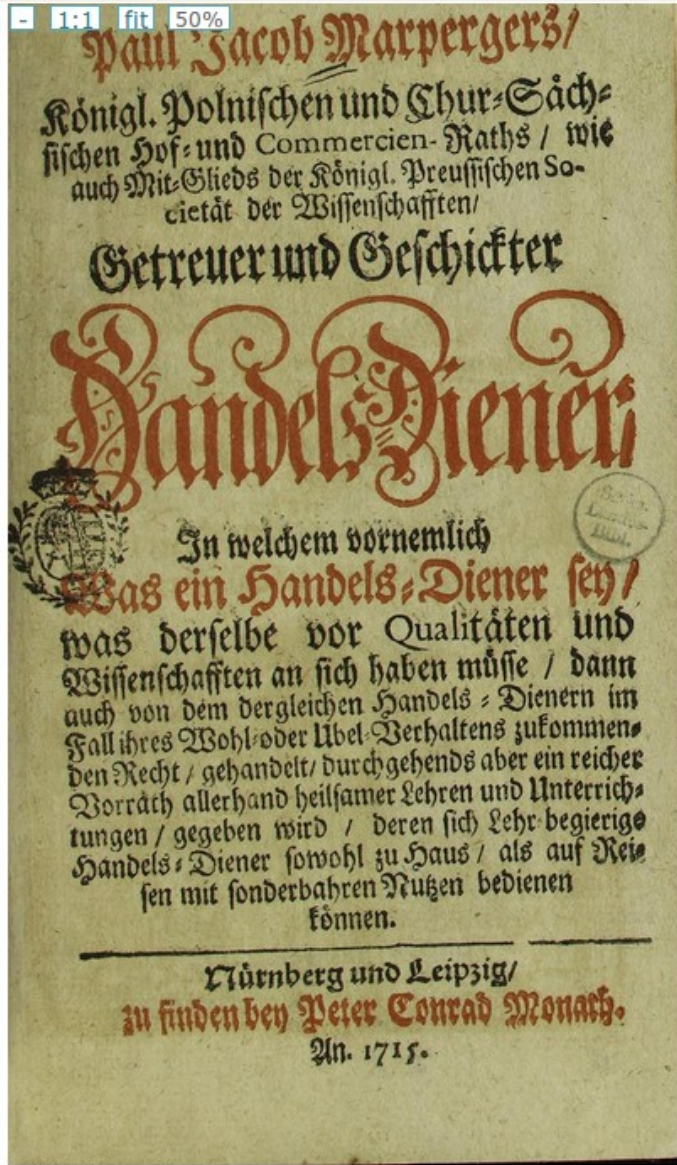 - 1:1 fit 50%
Paul Jacob Marpergers/
Königl. Polnischen und Chur-Säch-
sischen Hof- und Commercien-Raths / wie
auch Mit-Glieds der Königl. Preussischen So-
cietät der Wissenschafften/
Getreuer und Geschickter
Handels-Diener/
In welchem vornemlich
Was ein Handels-Diener sey/
was derselbe vor Qualitäten und
Wissenschafften an sich haben müsse / dann
auch von dem dergleichen Handels-Dienern im
Fall ihres Wohl- oder Ubel-Verhaltens zukommen-
den Recht / gehandelt/ durchgehends aber ein reicher
Vorrath allerhand heilsamer Lehren und Unterrich-
tungen / gegeben wird / deren sich Lehr-begierige
Handels-Diener sowohl zu Haus / als auf Rei-
sen mit sonderbahren Nutzen bedienen
können.
Nürnberg und Leipzig/
zu finden bey Peter Conrad Monath.
An. 1715.